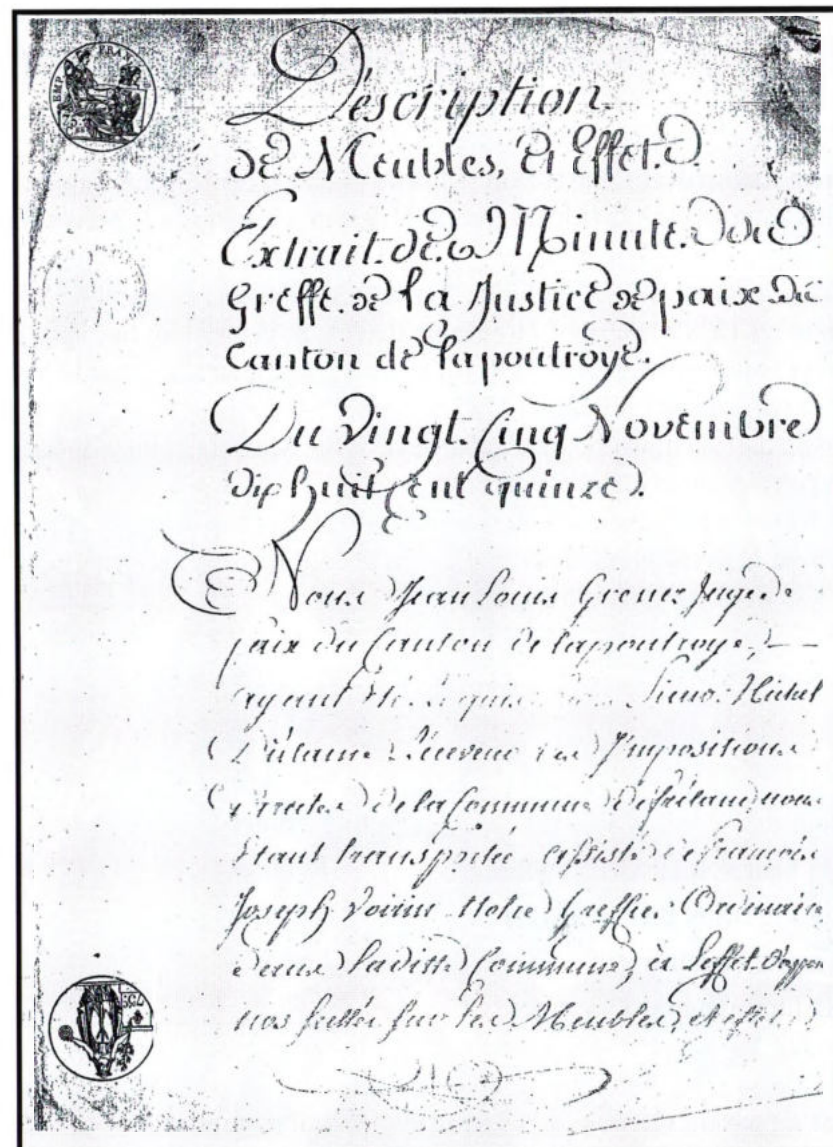 EMP. FRAN
Déscription
de Meubles, Et Effet.
Extrait des Minute du
Greffe de la Justice de paix du
Canton de lapoutroye.
Du Vingt Cinq Novembre
dix huit Cent quinze.
Nous Jean Louis Juge de
paix du Canton de lapoutroye,
ayant été requis Sieur
Imposition
Directes de la Commune nous
étant transporté assisté de francois
Joseph Voirin Notre Greffier Ordinaire
dans Laditte Commune, à Leffet
nos scellés sur les Meubles et effet